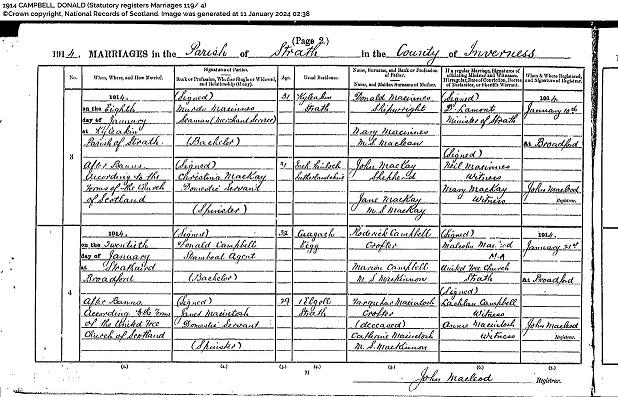 1914 CAMPBELL, DONALD (Statutory registers Marriages 119/ 4)
©Crown copyright, National Records of Scotland. Image was generated at 11 January 2024 02:38
(Page 2.)
1914. MARRIAGES in the Parish of Strath in the County of Inverness
No.
When, Where, and How Married.
Signatures of Parties.
Rank or Profession, Whether Single or Widowed, and Relationship (if any).
Age.
Usual Residence.
Name, Surname, and Rank or Profession of Father.
Name, and Maiden Surname of Mother.
If a regular Marriage, Signatures of officiating Minister and Witnesses.
When & Where Registered, and Signature of Registrar.
3
1914.
on the Eighth
day of January
at Kyleakin
Parish of Strath.
After Banns
According to the
Forms of the Church
of Scotland
(Signed)
Murdo Macinnes
Seaman (Merchant Service)
(Bachelor)
(Signed)
Christina Mackay
Domestic Servant
(Spinster)
31
Kyleakin
Strath
31
Sutherlandshire
Donald Macinnes
Shipwright
Mary Macinnes
M.S. Maclean
John Mackay
Shepherd
Jane Mackay
M.S. Mackay
(Signed)
Lamont
Minister of Strath
(Signed)
Neil Macinnes
Witness
Mary Mackay
Witness
1914
January 10th
at Broadford
John Macleod
Registrar.
4
1914.
on the Twentieth
day of January
at Strathaird
Broadford
After Banns
According to the Forms
of the United Free
Church of Scotland
(Signed)
Donald Campbell
Steamboat Agent
(Bachelor)
(Signed)
Janet Macintosh
Domestic Servant
(Spinster)
32
Eigg
29
Elgoll
Strath
Roderick Campbell
Crofter
Marion Campbell
M.S. Mackinnon
Farquhar Macintosh
Crofter
(deceased)
Catherine Macintosh
M.S. Mackinnon
(Signed)
Malcolm
M.A.
United Free Church
Strath
(Signed)
Lachlan Campbell
Witness
Annie Macintosh
Witness
1914.
January 21st
at Broadford
John Macleod
Registrar.
John Macleod Registrar.